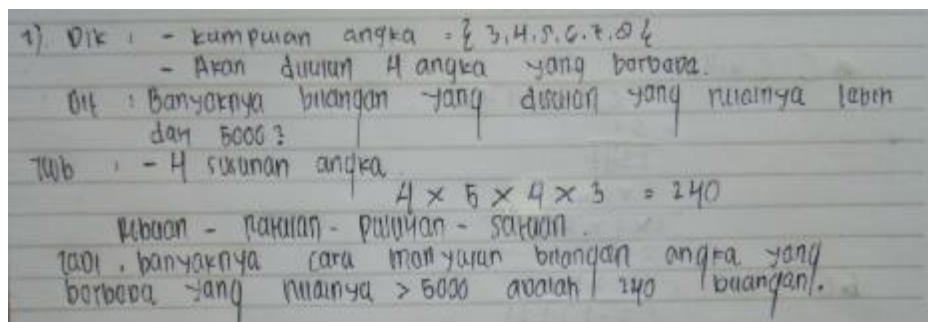 1) Dik : - kumpulan angka = { 3, 4, 5, 6, 7, 8 {
- Akan disusun 4 angka yang berbeda.
Dit : Banyaknya bilangan yang disusun yang nilainya lebih
dari 5000 ?
Jwb : - 4 susunan angka
4 × 5 × 4 × 3 = 240
Ribuan - Ratusan - Puluhan - Satuan .
Jadi , banyaknya cara menyusun bilangan angka yang
berbeda yang nilainya > 5000 adalah 240 bilangan .